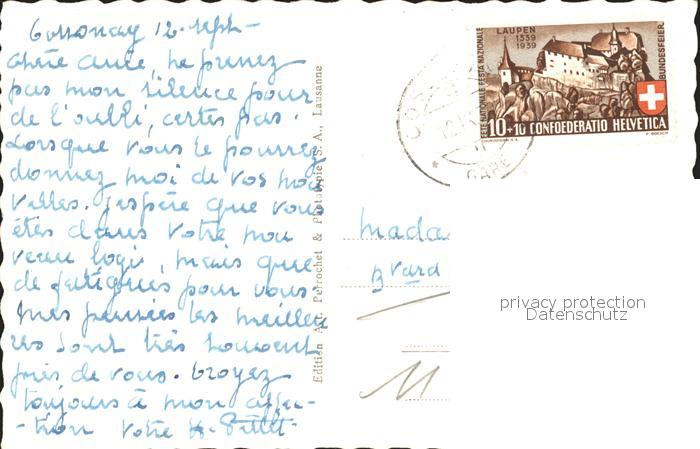 Cossonay 12 sept-
Chère amie, ne prenez
pas mon silence pour
de l'oubli, certes pas.
Lorsque vous le pourrez
donnez moi de vos nou
velles. J'espère que vous
êtes dans votre nou
veau logis, mais que
de fatigues pour vous.
Mes pensées les meilleu
res sont très souvent
près de vous. Croyez
toujours à mon affec-
-tion Votre
Edition Art. Perrochet & Phototypie S. A., Lausanne
LAUPEN
1339
1939
FÊTE NATIONALE FESTA NAZIONALE
BUNDESFEIER
10+10 CONFOEDERATIO HELVETICA
COURVOISIER S.A.
GARE
Mada
Bvard
M
privacy protection
Datenschutz